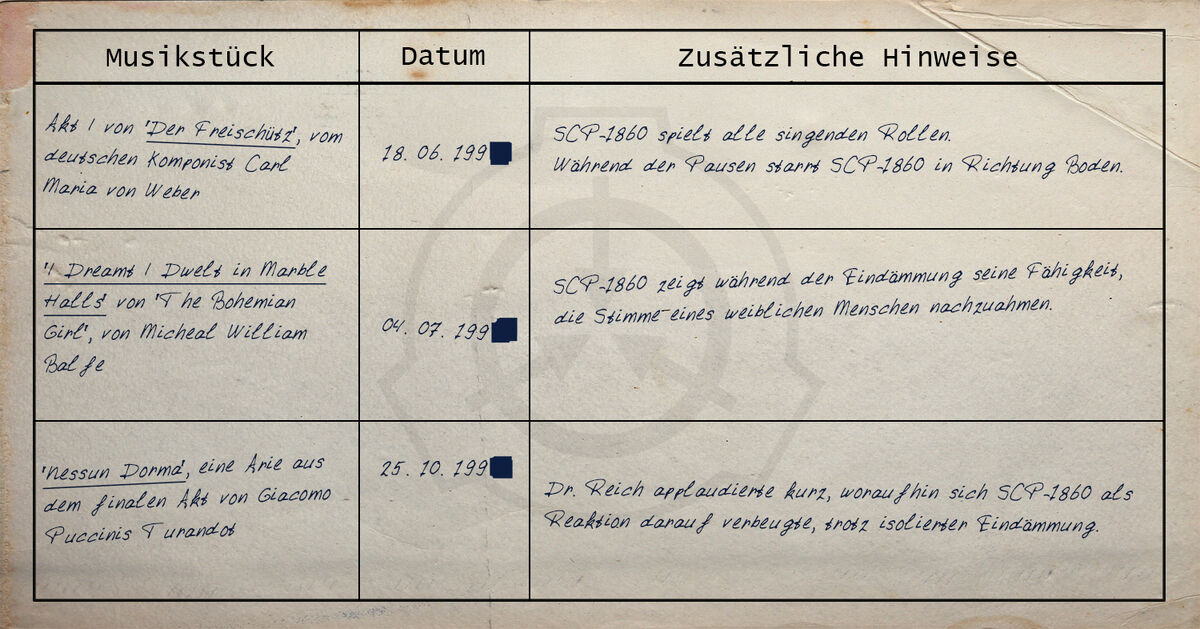 Musikstück
Datum
Zusätzliche Hinweise
Akt I von 'Der Freischütz', vom
deutschen Komponist Carl
Maria von Weber
18. 06. 199
SCP-1860 spielt alle singenden Rollen.
Während der Pausen starrt SCP-1860 in Richtung Boden.
'I Dreamt I Dwelt in Marble
Halls' von 'The Bohemian
Girl', von Micheal William
Balfe
04. 07. 199
SCP-1860 zeigt während der Eindämmung seine Fähigkeit,
die Stimme eines weiblichen Menschen nachzuahmen.
'Nessun Dorma', eine Arie aus
dem finalen Akt von Giacomo
Puccinis Turandot
25. 10. 199
Dr. Reich applaudierte kurz, woraufhin sich SCP-1860 als
Reaktion darauf verbeugte, trotz isolierter Eindämmung.